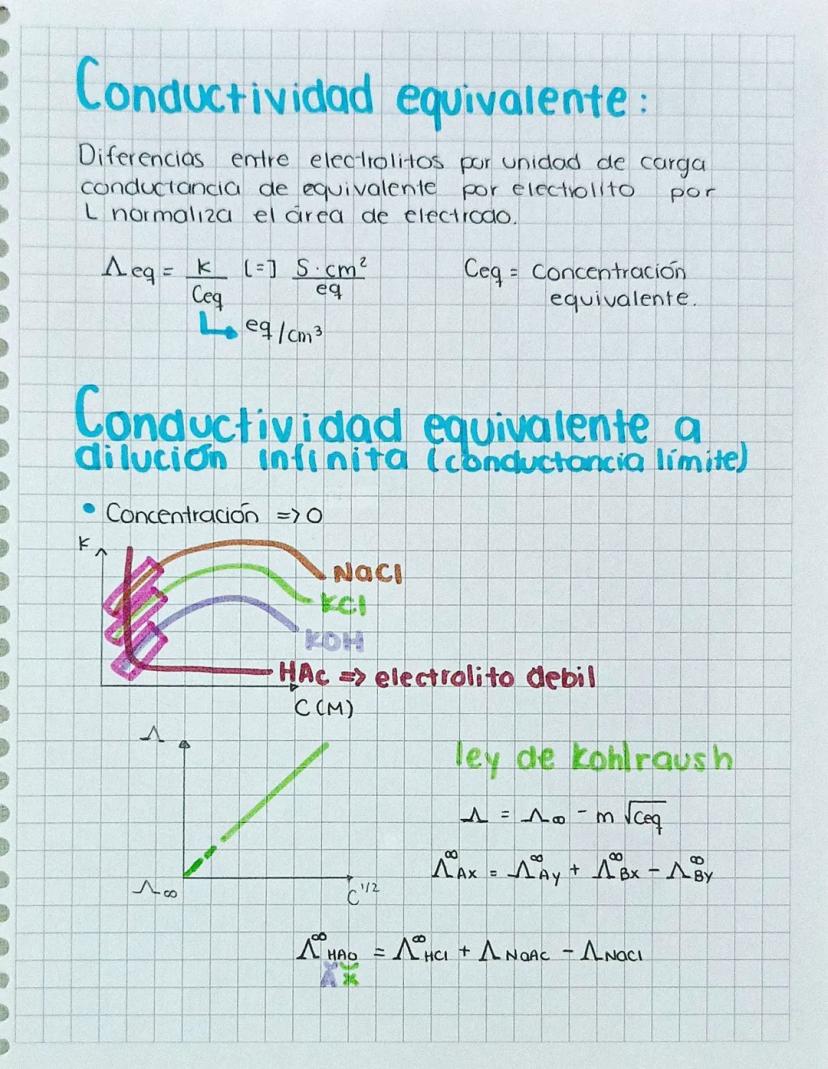 Conductividad equivalente:
Diferencias entre electrolitos por unidad de carga
conductancia de equivalente por electrolito por
L normaliza el área de electrodo.
Λeq = K/Ceq [=] S·cm²/eq
↳ eq/cm³
Ceq = concentración
equivalente.
Conductividad equivalente a
dilución infinita (conductancia límite)
• Concentración => 0
K
NaCl
KCl
KOH
HAc => electrolito debil
C(M)
Λ
Λ∞
C^1/2
ley de kohlraush
Λ = Λ∞ - m √Ceq
Λ^∞ Ax = Λ^∞ Ay + Λ^∞ Bx - Λ^∞ By
Λ^∞ HAc = Λ^∞ HCl + Λ NaAc - Λ NaCl
A x